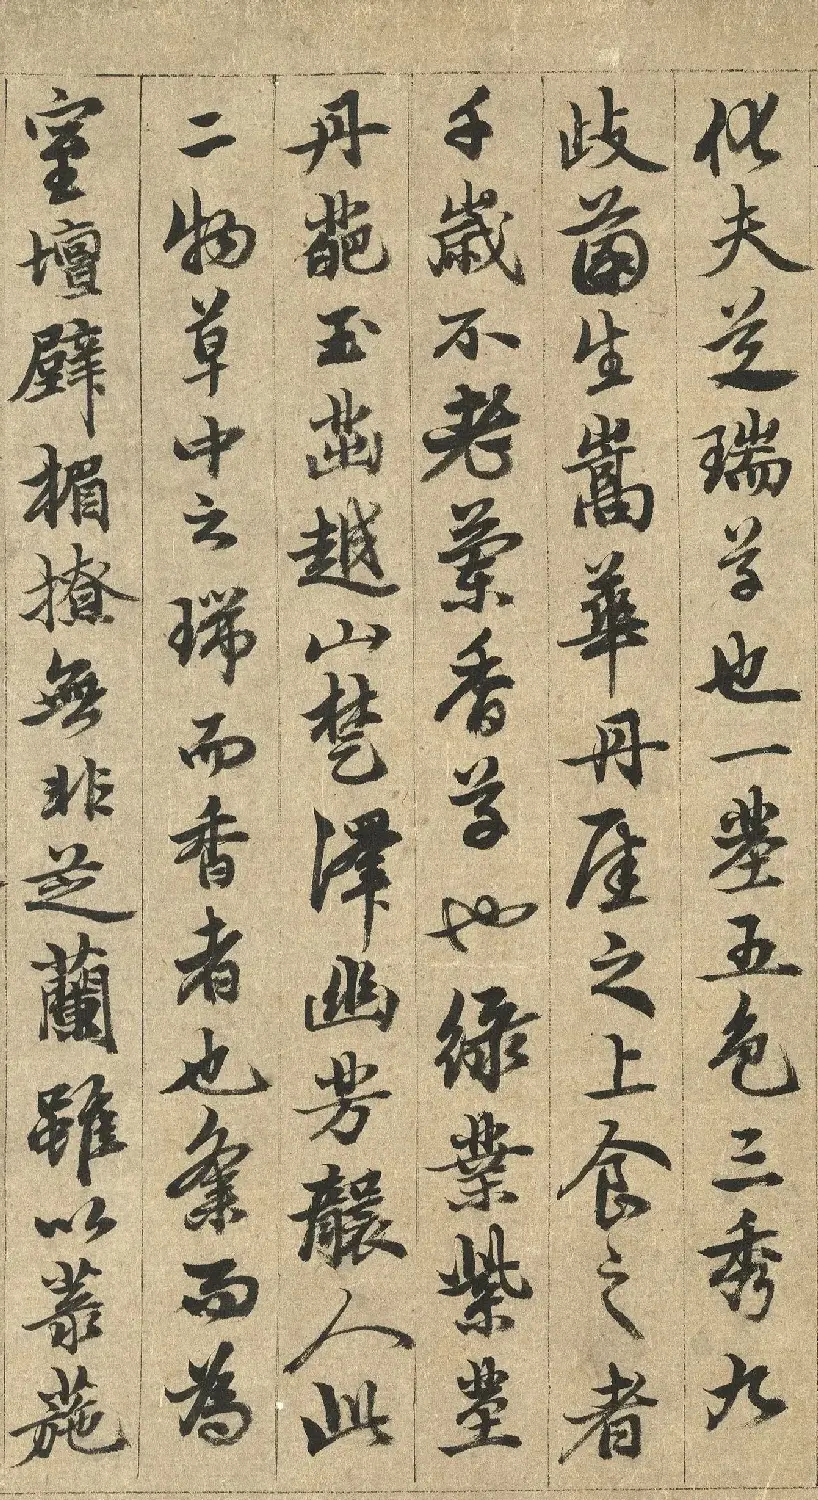 化夫芝瑞草也一莖五色三秀九
歧菌生嵩華丹厓之上食之者
千歲不老蘭香草也綠葉紫莖
丹葩玉茁越山楚澤幽芳襲人此
二物草中之瑞而香者也而為
室壇壁楣橑無非芝蘭雖以叢葹